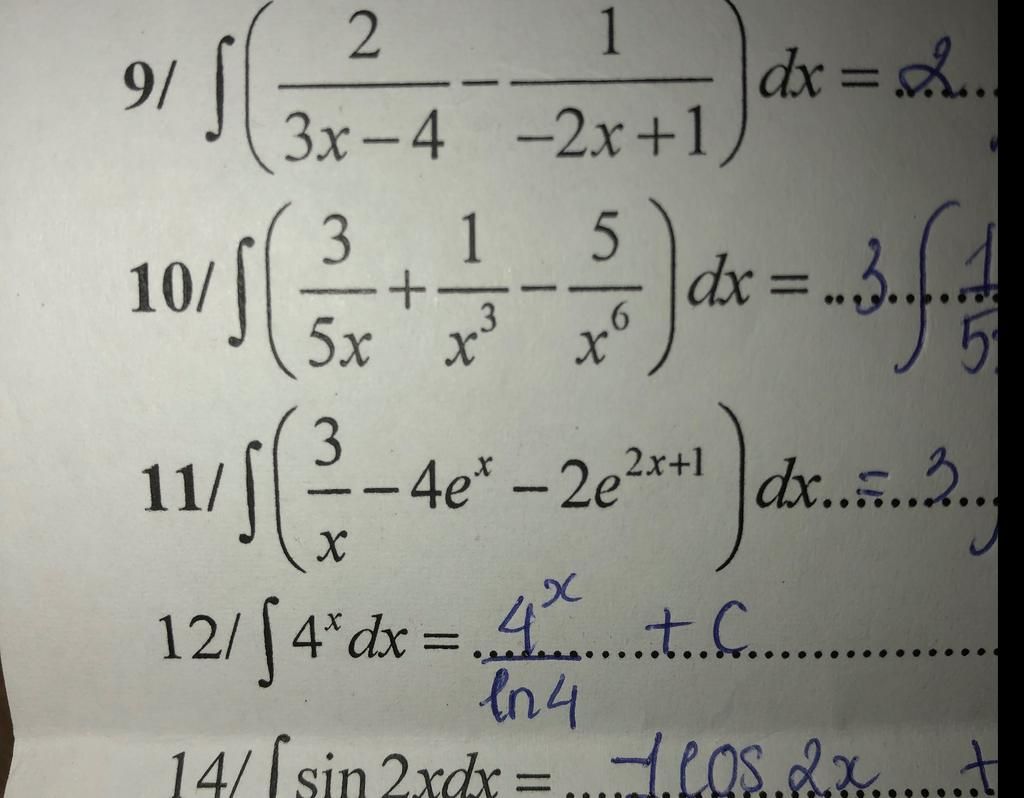 9/ ∫(2/(3x−4) − 1/(−2x+1))dx = 2
10/ ∫(3/(5x) + 1/x³ − 5/x⁶)dx = 3∫1/5
11/ ∫(3/x − 4eˣ − 2e²ˣ⁺¹)dx = 3
12/ ∫4ˣdx = 4ˣ/ln4 + C
14/ ∫sin2xdx = −1cos2x +